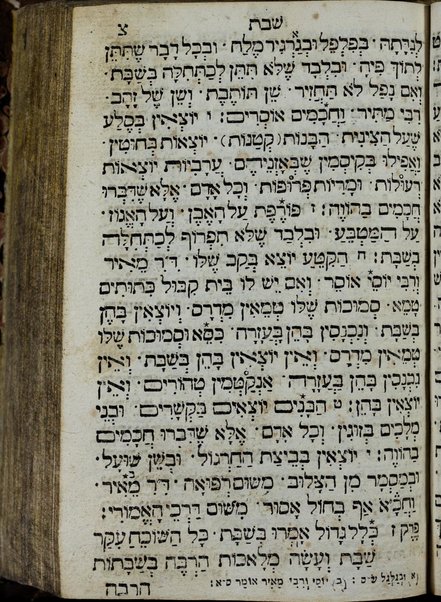 שבת
צ
לנדתה · בפלפל ובגרגיר מלח · ובכל דבר שתתן
לתוך פיה · ובלבד שלא תתן לכתחלה בשבת ·
ואם נפל לא תחזיר · שן תותבת · ושן של זהב ·
רבי מתיר · וחכמים אוסרים : ו יוצאין בסלע
שעל הצינית · הבנות (קטנות) · יוצאות בחוטין ·
ואפילו בקיסמין שבאזניהם · ערביות יוצאות
רעולות · ומדיות פרופות · וכל אדם · אלא שדברו
חכמים בהווה : ז פורפת על האבן · ועל האגוז ·
ועל המטבע · ובלבד שלא תפרוף לכתחלה
בשבת : ח הקטע יוצא בקב שלו · ד׳ר מאיר ·
ורבי יוסי אוסר · ואם יש לו בית קבול כתותים
טמא · סמוכות שלו טמאין מדרס · ויוצאין בהן
בשבת · ונכנסין בהן בעזרה · כסא וסמוכות שלו
טמאין מדרס · ואין יוצאין בהן בשבת · ואין
נכנסין בהן בעזרה · אנקטמין טהורים · ואין
יוצאין בהן : ט הבנים יוצאים בקשרים · ובני
מלכים בזוגין · וכל אדם · אלא שדברו חכמים
בהווה : י יוצאין בביצת החרגול · ובשן שועל ·
ובמסמר מן הצלוב · משום רפואה · ד׳ר מאיר ·
וחכ׳א אף בחול אסור · משום דרכי האמורי :
פרק ז כלל גדול אמרו בשבת · כל השוכח עקר
שבת ועשה מלאכות הרבה בשבתות
הרבה
(א ובגלגל ס״א : (ב) יוסי ורבי מאיר אומר ס״א :